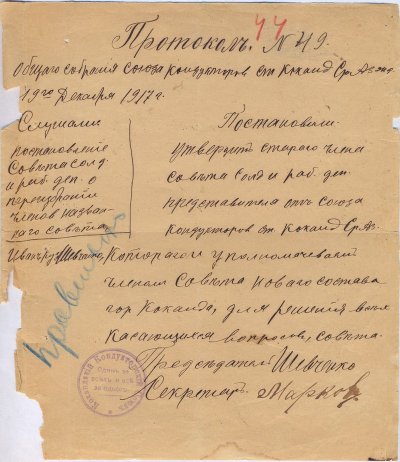 44
Протоколъ. № 49.
Общаго собрания союза кондукторов ст Коканд Ср. Аз жд
19го Декабря 1917 г.
Слушали
постановление
Совета солд.
и раб. деп. о
переизбрании
членов назван-
наго совета
Постановили
утвердить стараго члена
совета солд и раб. деп.
представителя отъ союза
кондукторов ст. Коканд Ср. Аз.
Шевченко, Котораго и уполномачивает
членом Совета новаго состава
гор Коканда, для решения всех
касающихся вопросов, совета.
Председатель Шевченко
Секретарь Марков
Одинъ за
всехъ и все
за одного